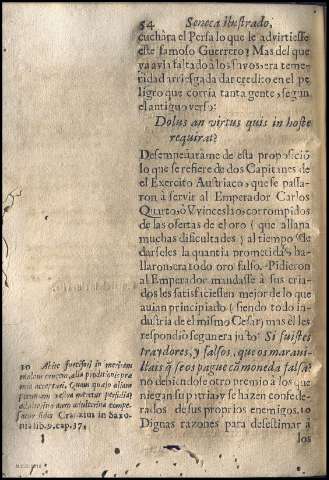 54 Seneca ilustrado,
cuchàra el Persa lo que le advirtiesse
este famoso Guerrero; Mas del que
ya avia faltado à los suyos, era teme-
ridad arriesgada dar credito en el pe-
ligro que corria tanta gente, segun
el antiguo verso:
Dolus an virtus quis in hoste
requirat?
Desempeñaràme de esta proposiciõ
lo que se refiere de dos Capitanes de
el Exercito Austriaco, que se passa-
ron à servir al Emperador Carlos
Quarto, ò Vvinceslao, corrompidos
de las ofertas de el oro (que allana
muchas dificultades) y al tiempo de
darseles la quantia prometida, ha-
llaron era todo oro falso. Pidieron
al Emperador mandasse à sus cria-
dos les satisficiessen mejor de lo que
avian principiado (siendo todo in-
dustria de el mismo Cesar) mas èl les
respondiò segunera justo: Si fuistes
traydores, y falsos, que os maravi-
llais q̃ se os pague cõ moneda falsa?
no debiendose otro premio à los que
niegan su patria, y se hazen confede-
rados de sus proprios enemigos. 10
Dignas razones para desestimar à
los
10
nem, alia proditionis præ-
mia acceptari.
Crantzius in Saxo-
nia lib. 9. cap. 17.